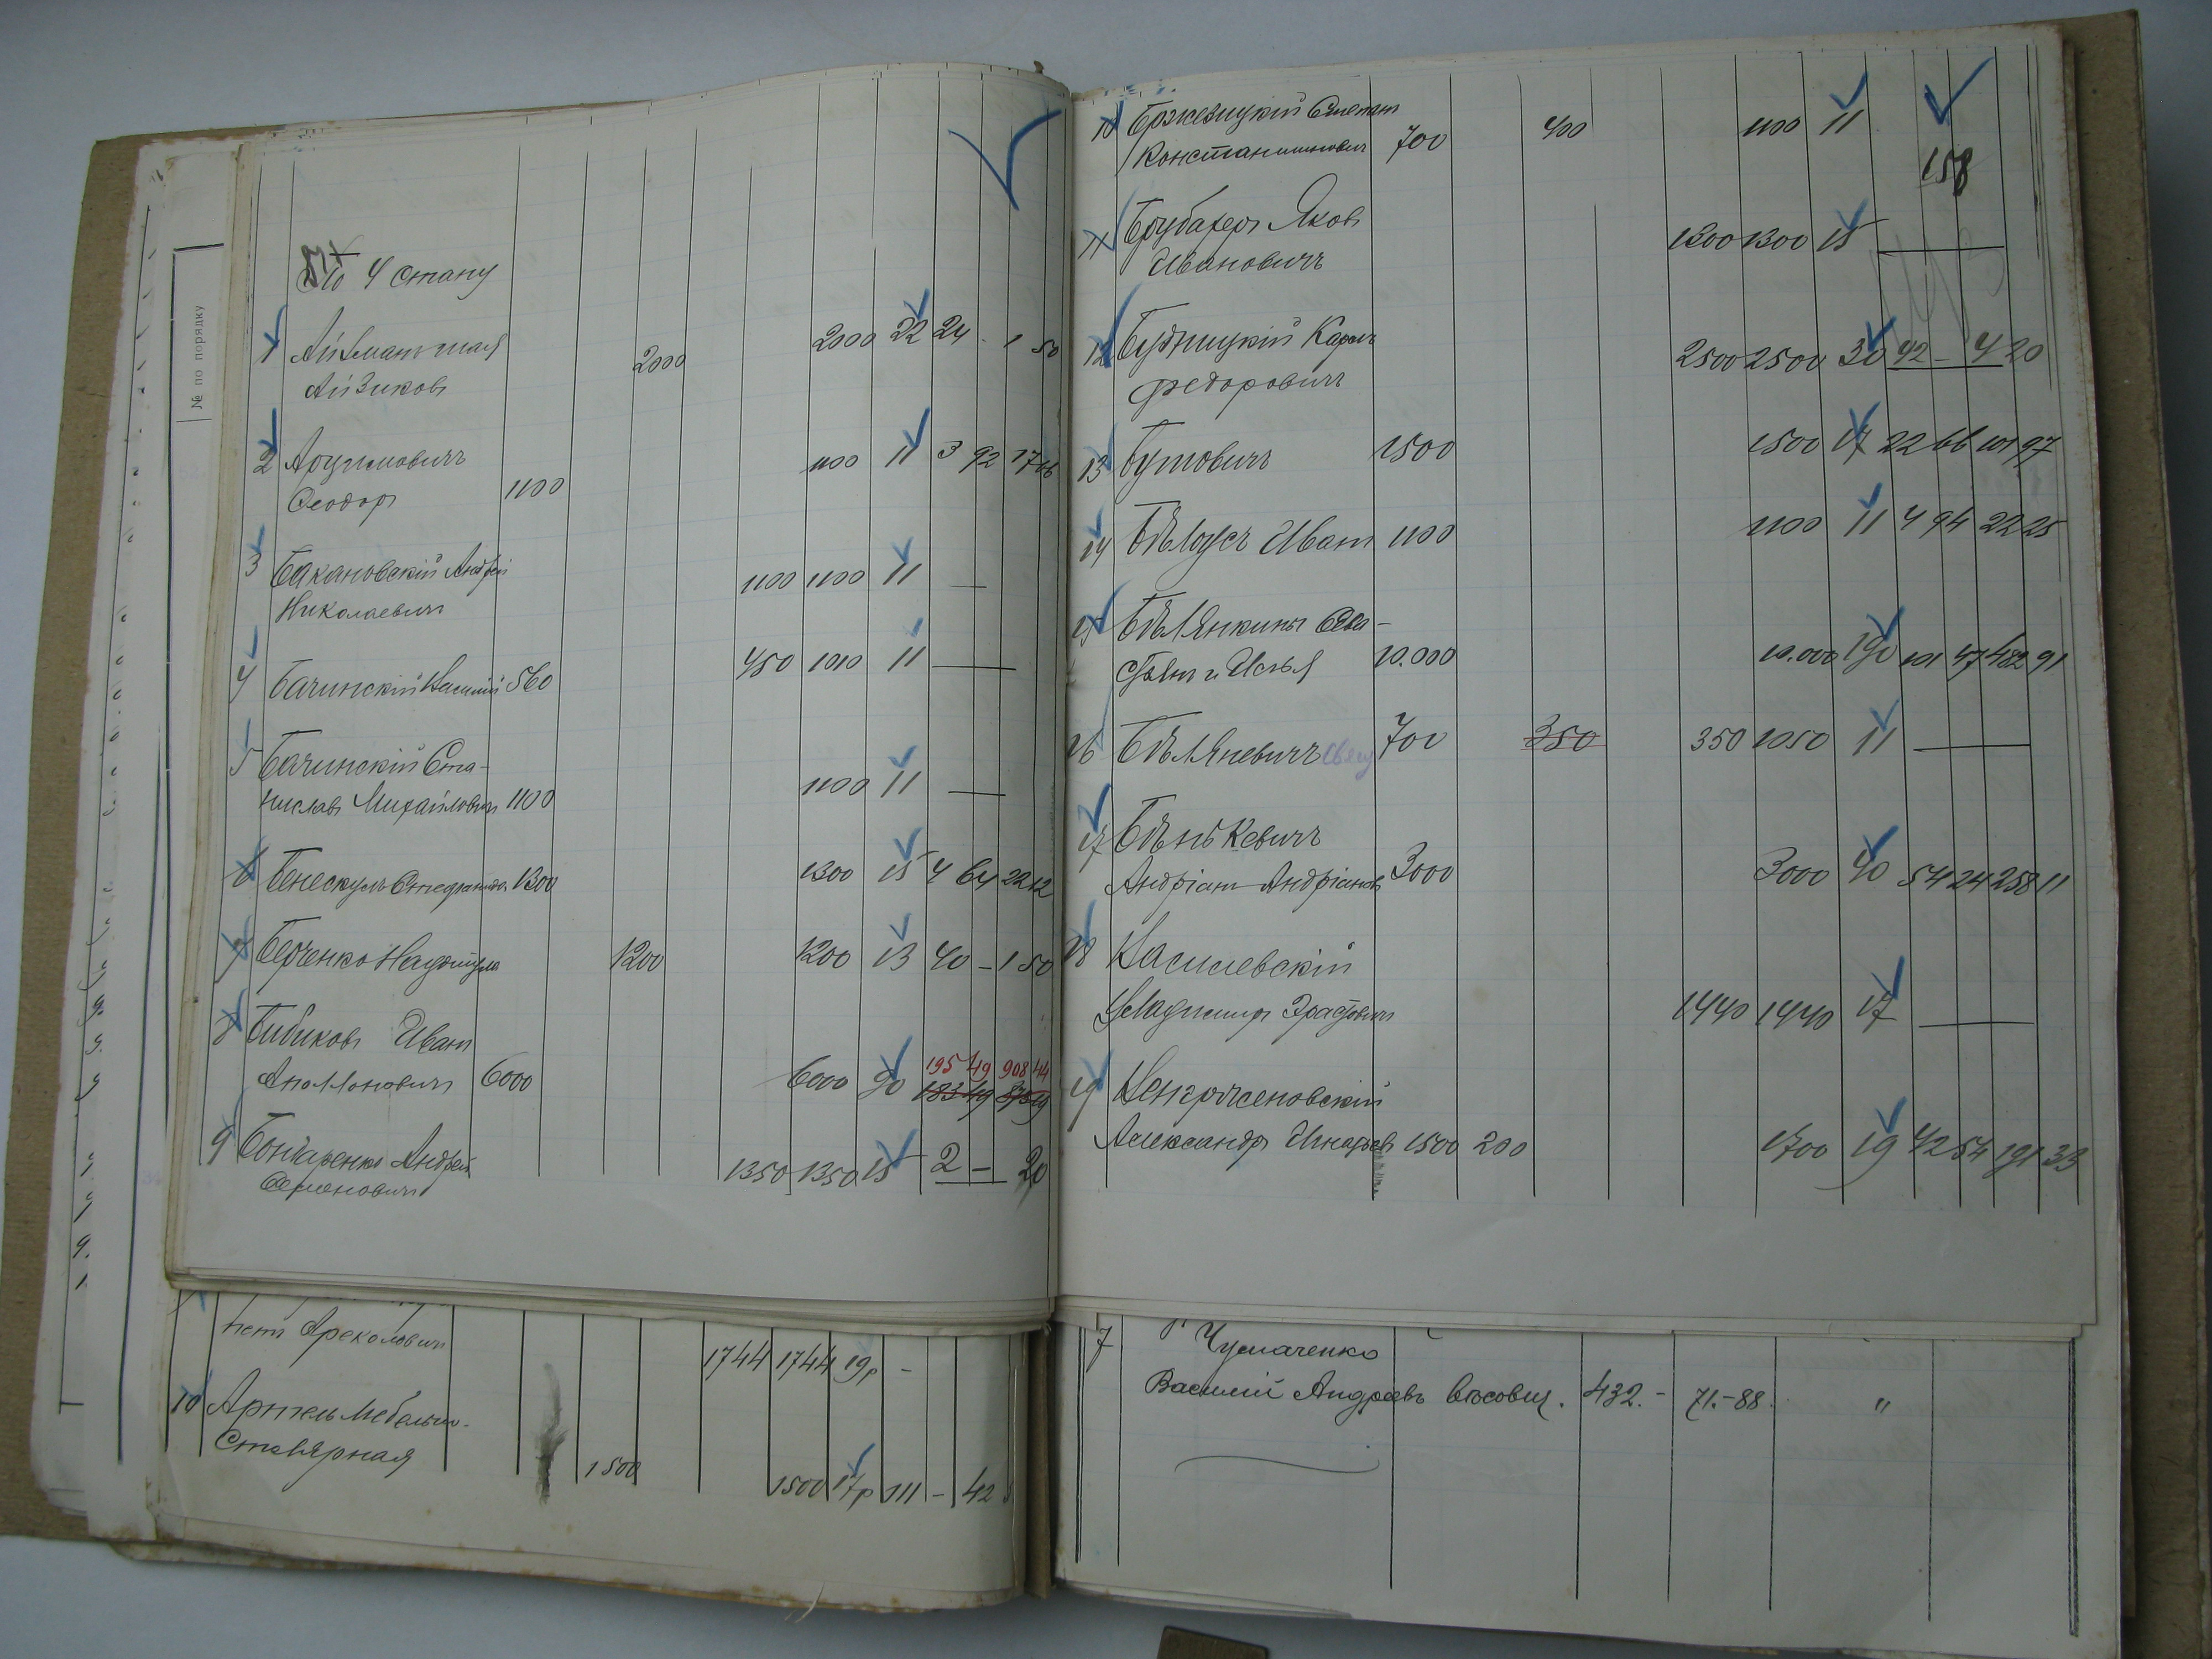 № по порядку
По 4 стану
1 2000 2000 22 24 - 1 50
Айзиковъ
2 1100 11 3 92 17
Феодоръ 1100
3 Бакановскій Андрей
Николаевичъ 1100 1100 11 —
4 Бачинскій Василій 560 450 1010 11 —
5 Бачинскій Ста-
ниславъ Михайловичъ 1100 1100 11 —
6 Бенескулъ 1300 1300 15 4 64 22 12
7 Берченко 1200 1200 13 40 - 1 50
8 Бибиковъ Иванъ
6000 6000 90 195 49 908 44
183 49
9 Бончаренко Андрей
Семеновичъ 1350 1350 15 2 - 20
1744 1744 19р -
10 Артель Мебельно-
Столярная 1500 1500 17р 111 - 42
10 Бржезицкій Степанъ
Константиновичъ 700 400 1100 11
158
11 Брубахеръ Яковъ
Ивановичъ 1300 1300 15 —
12 Будницкій Карлъ
Федоровичъ 2500 2500 30 42 - 4 20
13 Бутовичъ 1500 1500 17 22 66 101 97
14 Бѣлоусъ Иванъ 1100 1100 11 4 94 22 25
15 Бѣлянкины Сева-
стьянъ и Илья 10.000 10.000 190 101 47 482 91
16 Бѣляневичъ 700 350 350 1050 11 —
17 Бѣнькевичъ
Андріанъ Андріановъ 3000 3000 40 54 24 258 11
18 Василевскій
Владиміръ Эрастовичъ 1440 1440 17 —
19 Венгрженовскій
Александръ Игнатьевъ 1500 200 1700 19 42 54 191 33
7 Чумаченко
Василій Андреевъ 432.- 71.-88. "